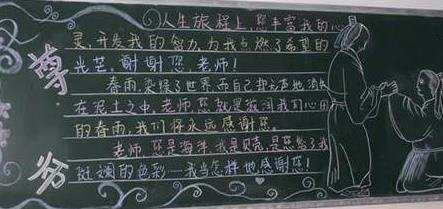 人生旅程上，您丰富我的心
灵，开发我的智力，为我点燃了希望的
光芒。谢谢您，老师！
春雨，染绿了世界，而自己却无声地消失
在泥土之中。老师，您就是滋润我们心田
的春雨，我们将永远感谢您。
老师，您是海洋，我是贝壳，是您给了我
斑斓的色彩……我当怎样地感谢您！
尊
师